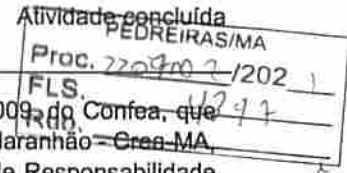 Atividade concluída
PEDREIRAS/MA
Proc. /202 1
FLS. 4297
009, do Confea, que
Maranhão - Crea-MA,
de Responsabilidade